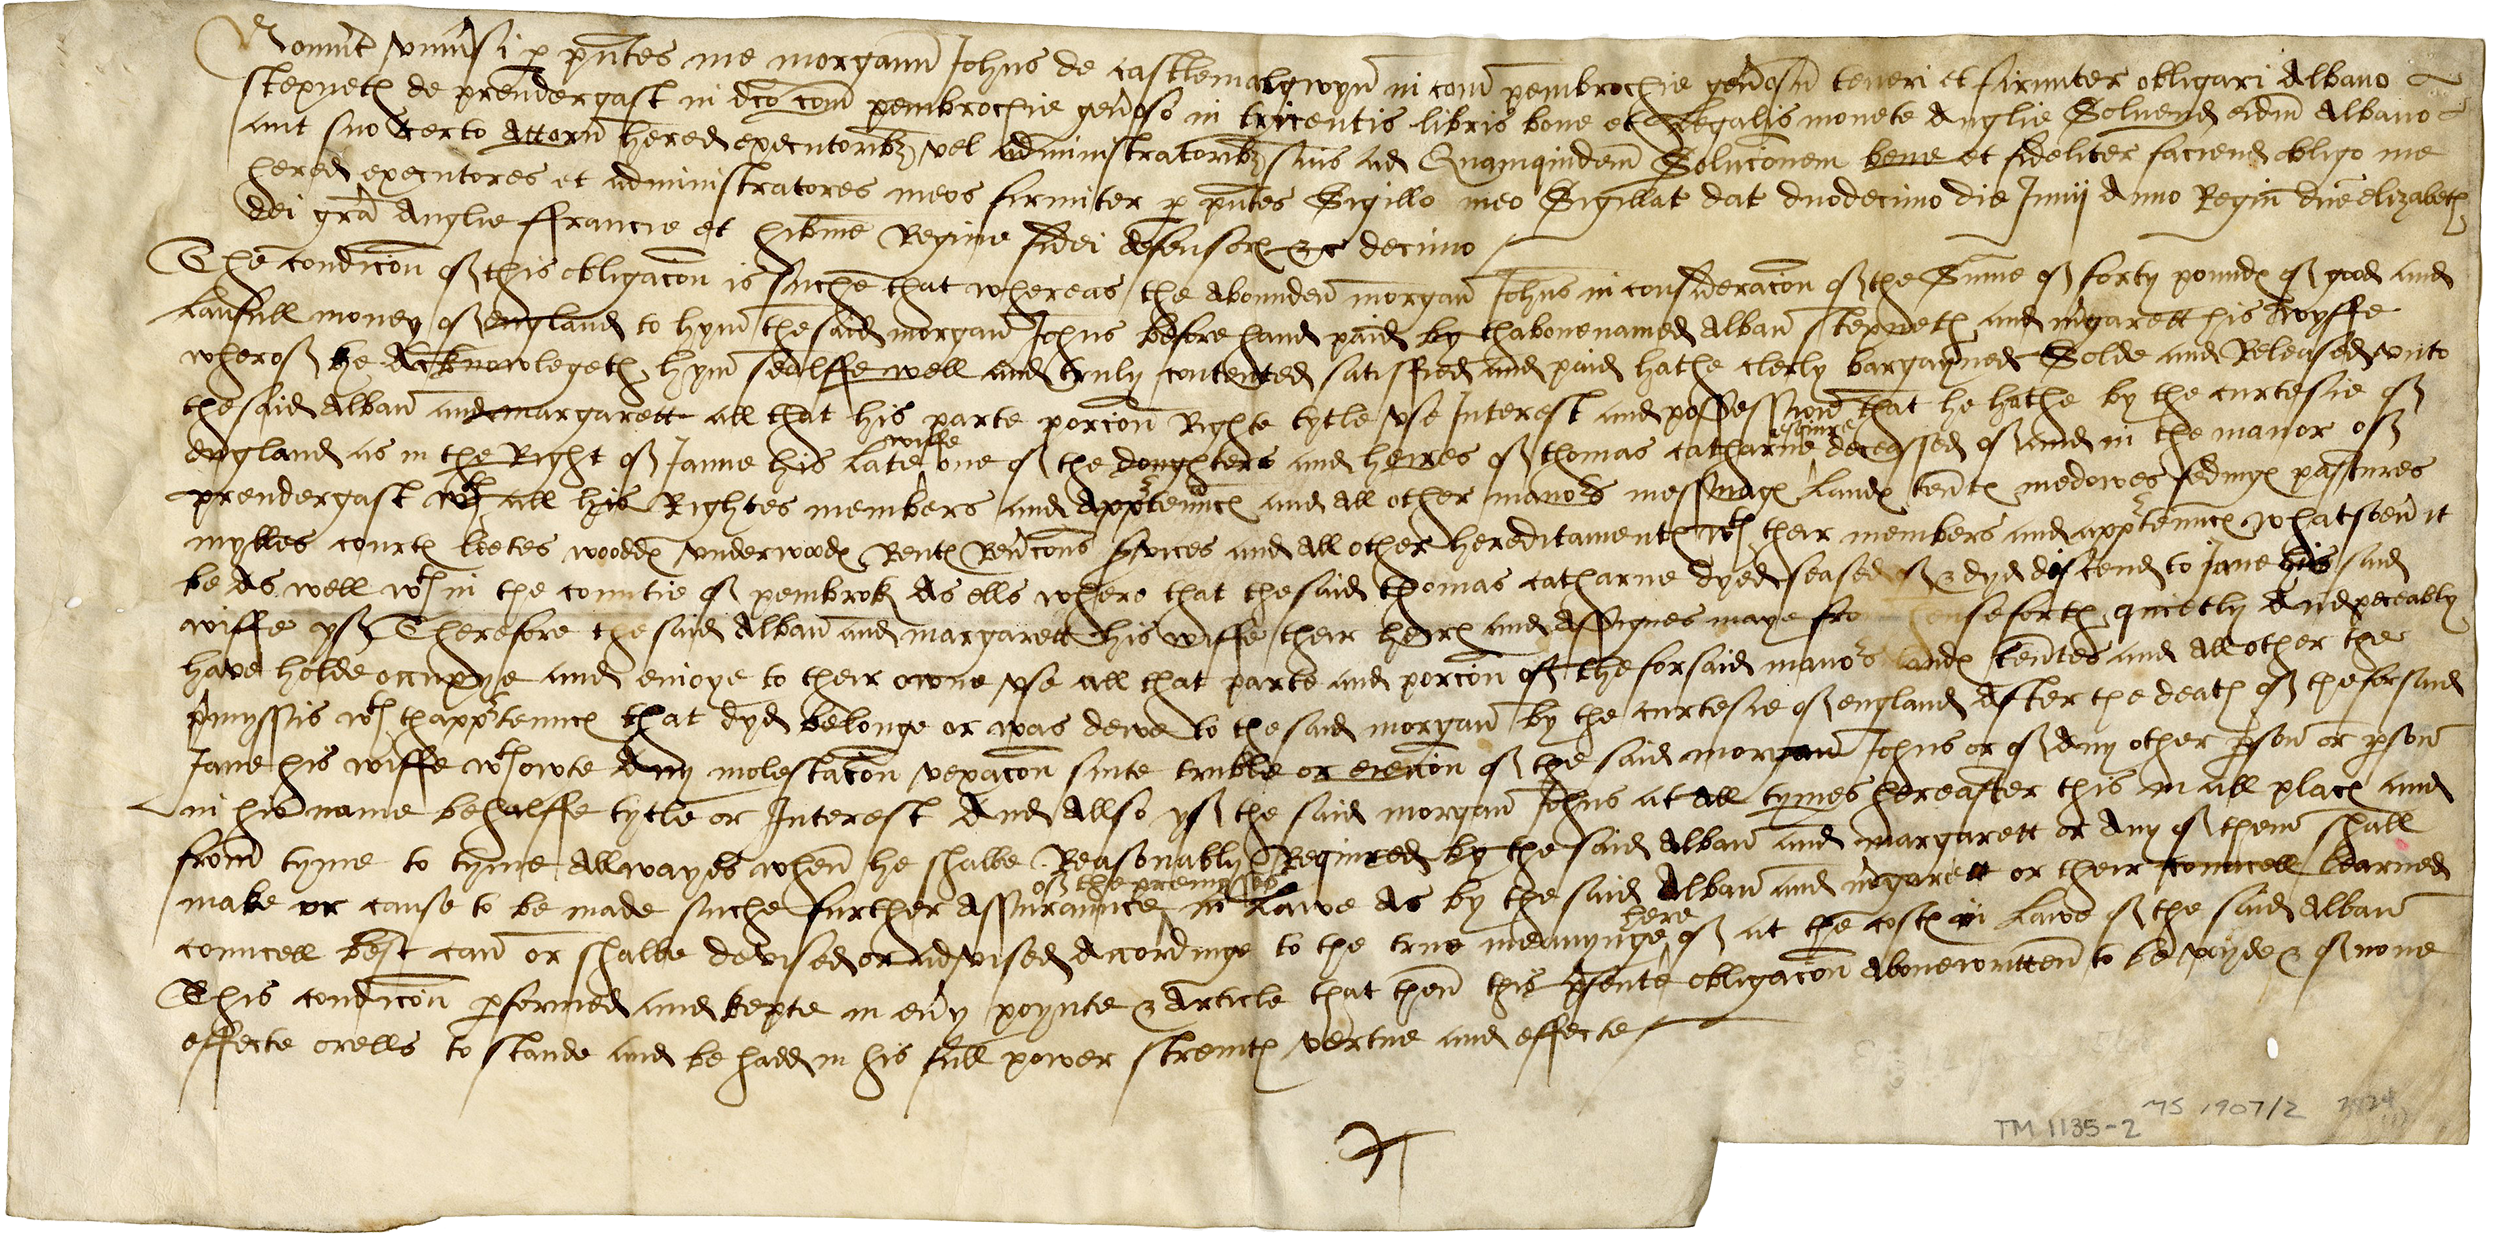 Noverint universi p pntes me morgann Johns de castlemalgwyn in com pembrochie genosu teneri et firmiter obligari Albano
stepneth de prendergast in dco com pembrochie genoso in tricentis libris bone et legalis monete Anglie Solvend eidm Albano
aut suo certo Attorn hered executoribz vel administratoribz suis ad Quamquidem Solucionem bene et fideliter faciend obligo me
hered executores et administratores meos firmiter p pntes Sigillo meo Sigillat dat duodecimo die Junij Anno Regni dne elizabeth
dei gra Anglie ffrancie et hibnie Regine fidei defensor &c decimo
The condicon of this obligacon is suche that whereas the abounden morgan Johns in consideracon of the Sume of forty pounds of good and
laufull money of england to hym the said morgan Johns before hand paid by thabovenamed Alban stepneth and mgarett his wyffe
wherof he Acknowlegeth hym sealffe well and truly contented satisffied and paid hathe clerly bargayned Solde and Released unto
the said Alban and margarett all that his parte porcion Righte tytle use Interest and possession that he hathe by the curtesie of
england as in the Right of Janne his late wiffe one of the doughters and heires of thomas catharne esquire deceassed of and in the manor off
prendergast wth all his Rightes members and apptennces and all other manors messuages landes tentes medowes fedinges pastures
mylles courtes leetes woodds underwoods Rentes Revcons svices and all other hereditamentes wth their members and apptennces whatsoevr it
be As well wth in the countie of pembrok As ells where that the said thomas catharne dyed seased of & dyd discend to Jane his said
wiffe yf Therefore the said Alban and margarett his wiffe their heires and Assignes maye from henseforth quietly And peceably
have holde occupye and enioye to their owne use all that parte and porcion of the forsaid manors landes tentes and all other the
pmyssis wth thapptennces that dyd belonge or was dewe to the said morgan by the curtesie of england After the death of the forsaid
Jane his wiffe wthowte Any molestacon vexacon suite truble or evicion of the said morgan Johns or of Any other pson or psons
in his name behalffe tytle or Interest And Allso yf the said morgan Johns at All tymes hereafter this in all places and
from tyme to tyme Allwayes when he shalbe Reasonably Required by the said Alban and margarett or Any of them shall
make or cause to be made suche further Assuraunce of the premysses in Lawe As by the said Alban and mgarett or their councell learned
councell best can or shalbe devised or advised Accordinge to the true meanynge here of at the costes in Lawe of the said Alban
This condicion pformed and kepte in evy poynte & Article that then this psente obligacon Abovewritten to be voyde & of none
effecte orells to stande and be hadd in his full power strenth vertue and effecte
MS 1907/2
TM 1135-2